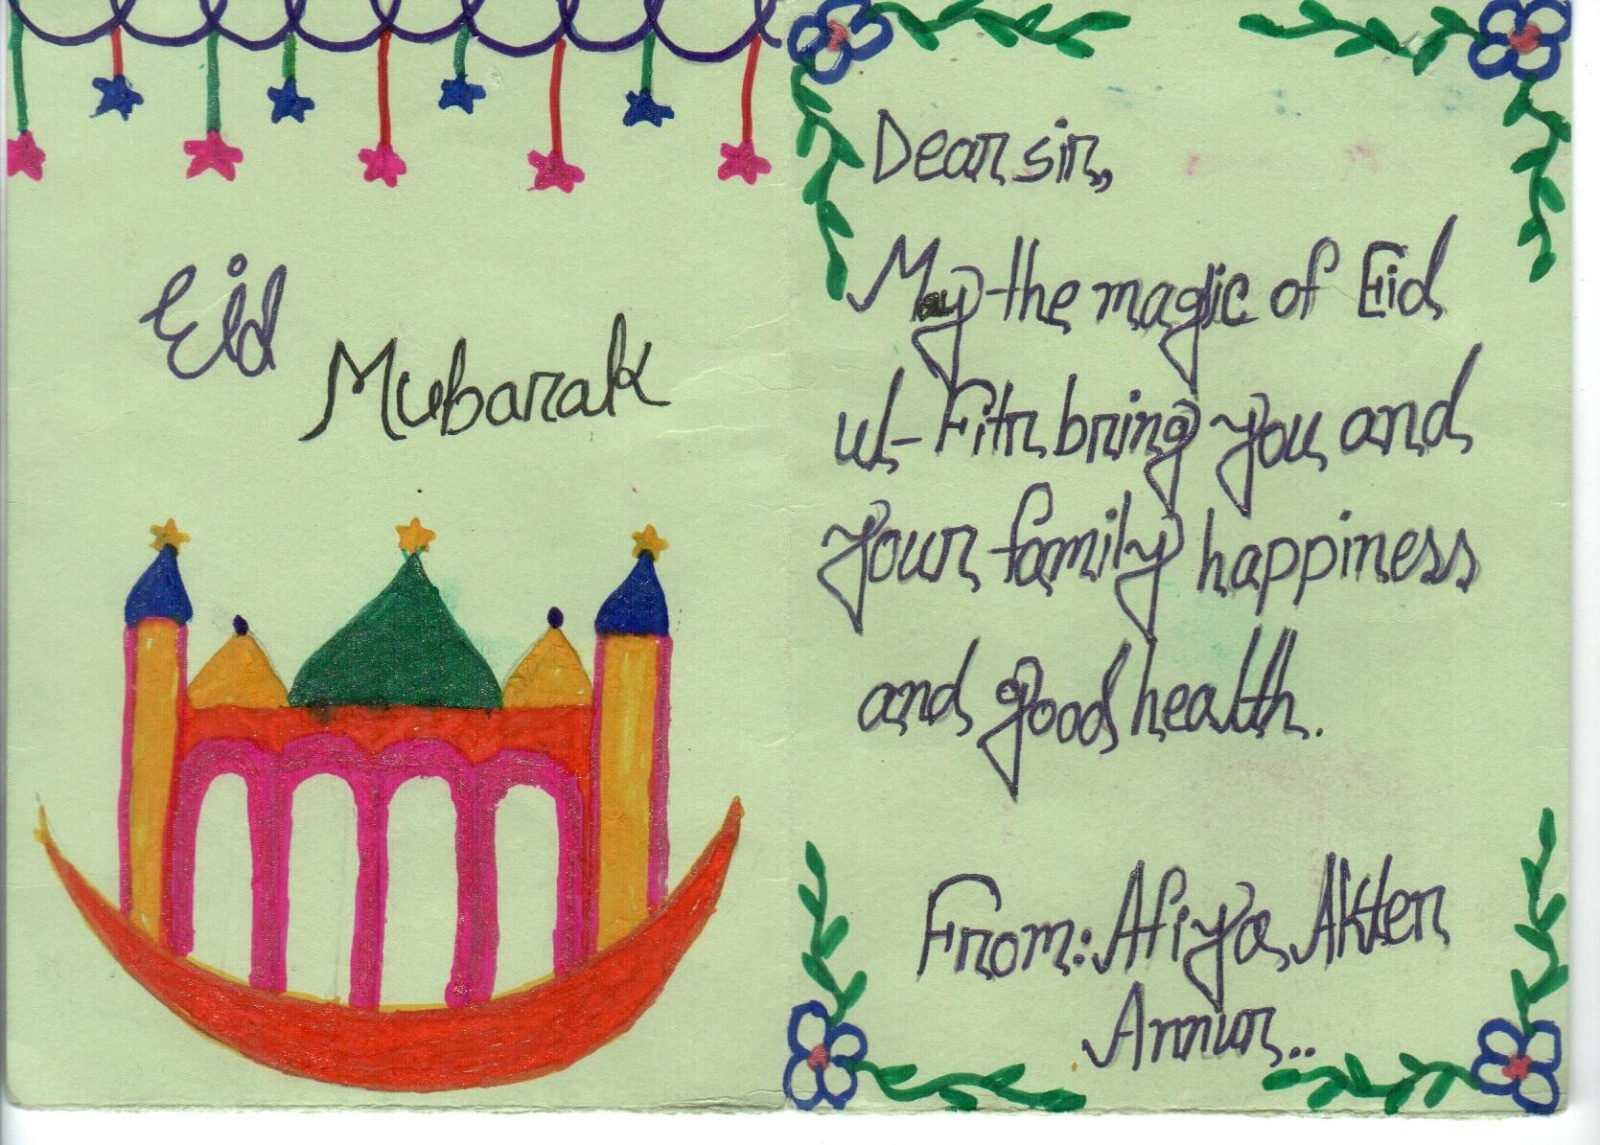 Eid
Mubarak
Dear sir,
May the magic of Eid
ul-Fitr bring you and
your family happiness
and good health.
From: Afiya Akter